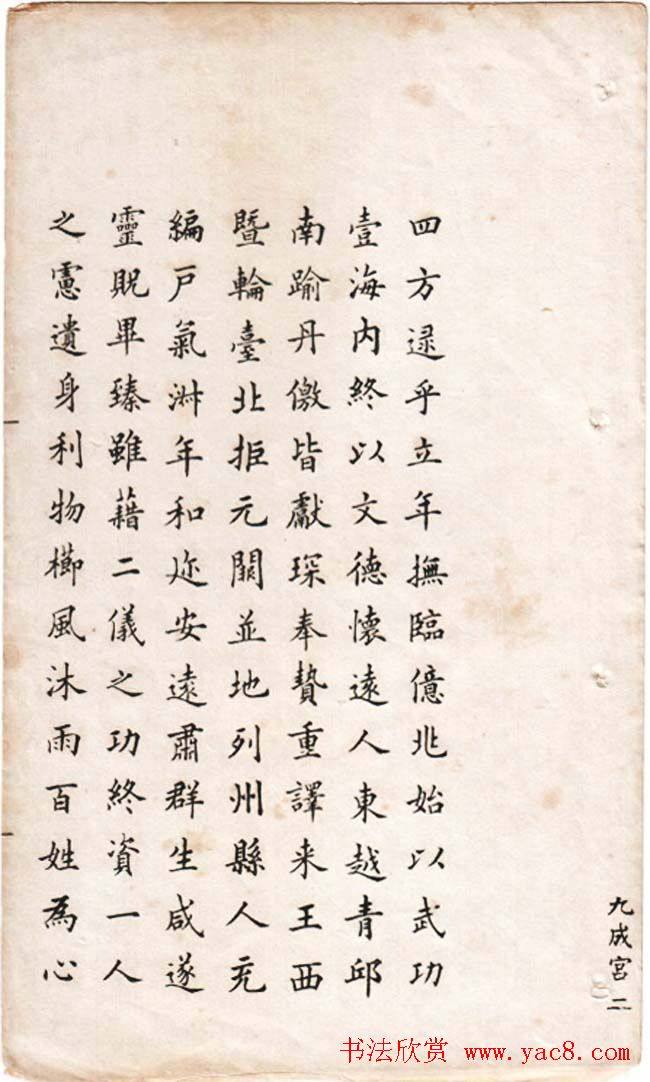 四方逯乎立年撫臨億兆始以武功
壹海内終以文德懷遠人東越青邱
南踰丹儌皆獻琛奉贄重譯来王西
暨輪臺北拒元闕並地列州縣人充
編戸氣淋年和迩安遠肅群生咸遂
靈貺畢臻雖藉二儀之功終資一人
之慮遺身利物櫛風沐雨百姓為心
九成宮二
书法欣赏 www.yac8.com